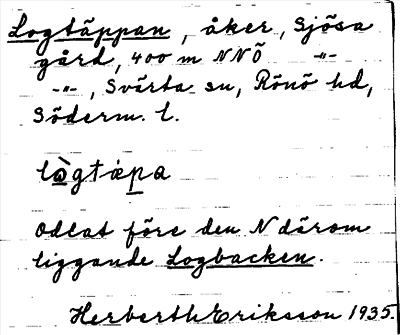 Logtäppan, åker, Sjösa
gård, 400 m NNÖ -"-
-"-, Svärta sn, Rönö hd,
Söderm. l.
lògtȧpa
Odlat före den N därom
liggande Logbacken.
Herberth Eriksson 1935.